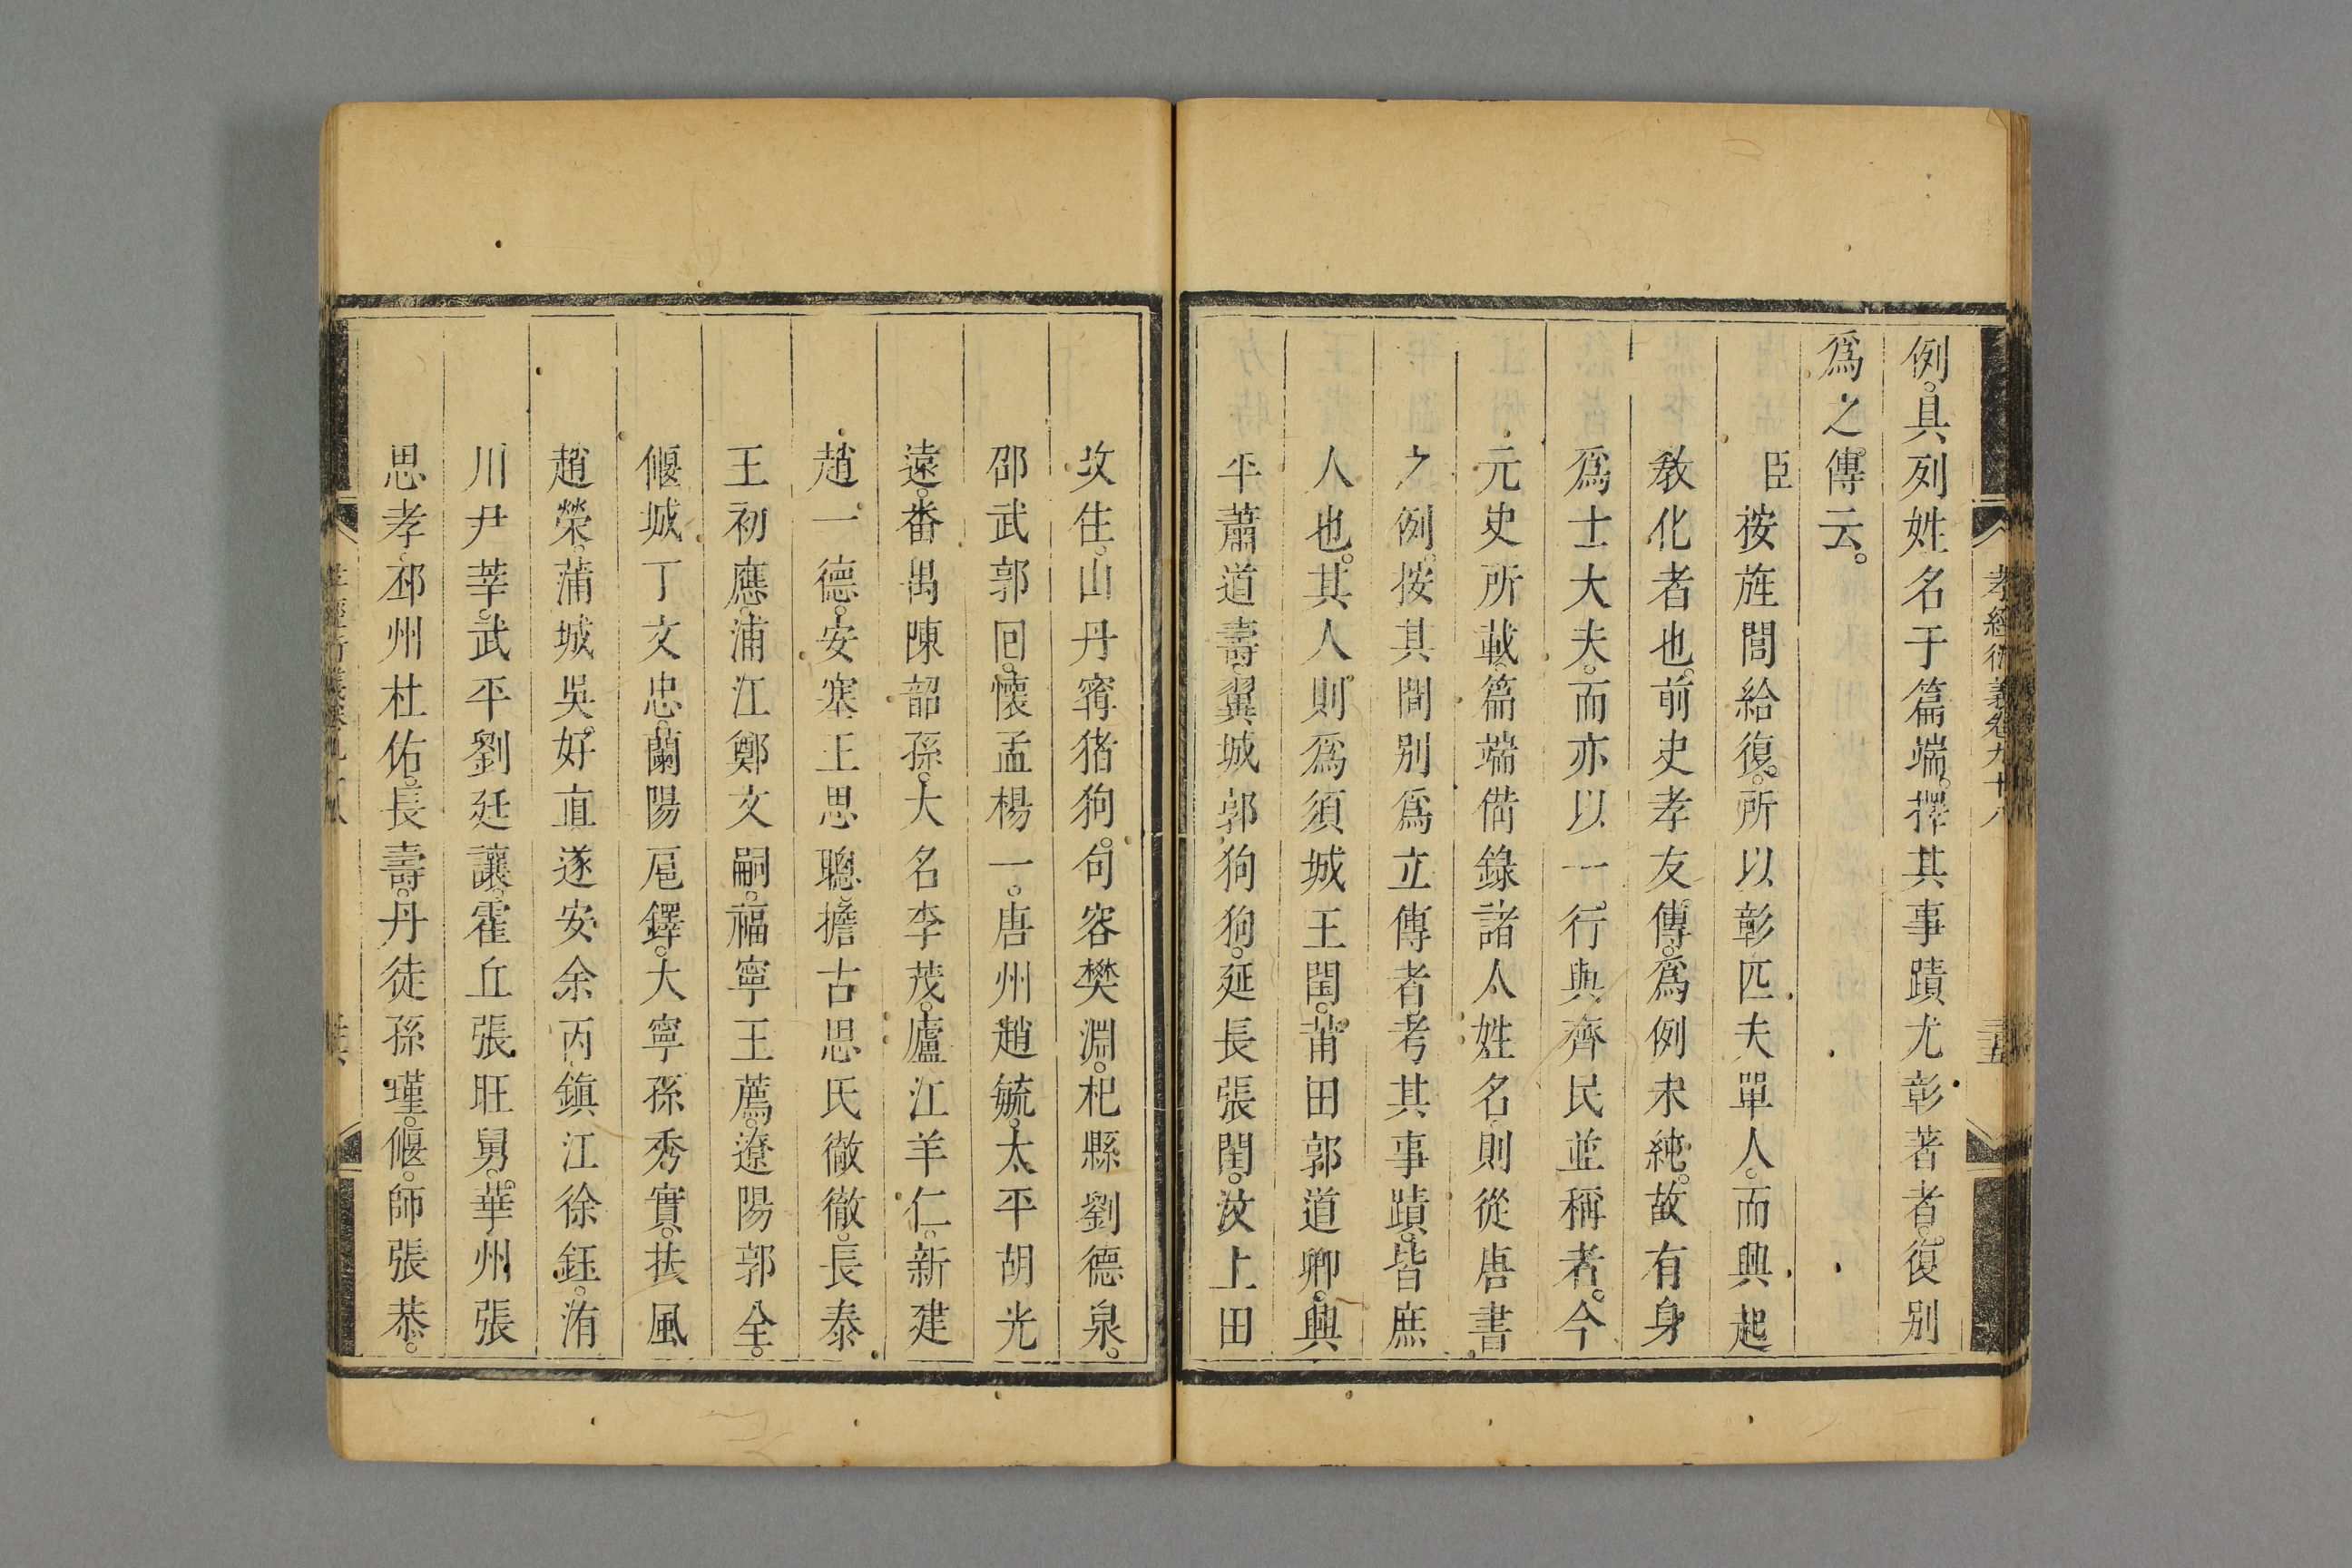 孝經衍義卷九十八
例。具列姓名于篇端。擇其事蹟尤彰著者。復別
爲之傳云。
臣按旌閭給復。所以彰匹夫單人。而興起
敎化者也。前史孝友傳。爲例未純。故有身
爲士大夫。而亦以一行與齊民並稱者。今
元史所載。篇端備錄諸人姓名。則從唐書
之例。按其間別爲立傳者。考其事蹟。皆庶
人也。其人則爲須城王閏。莆田郭道卿。興
平蕭道壽。翼城郭狗狗。延長張閏。汶上田
攺住。山丹甯猪狗。句容樊淵。杞縣劉德泉。
邵武郭回。懷孟楊一。唐州趙毓。太平胡光
遠。番禺陳韶孫。大名李茂。廬江羊仁。新建
趙一德。安塞王思聰。擔古思氏徹徹。長泰
王初應。浦江鄭文嗣。福寧王薦。遼陽郭全。
偃城丁文忠。蘭陽扈鐸。大寧孫秀實。扶風
趙榮。蒲城吳好直。遂安余丙。鎮江徐鈺。洧
川尹莘。武平劉廷讓。霍丘張旺舅。華州張
思孝。邳州杜佑。長壽。丹徒孫瑾。偃。師張恭。